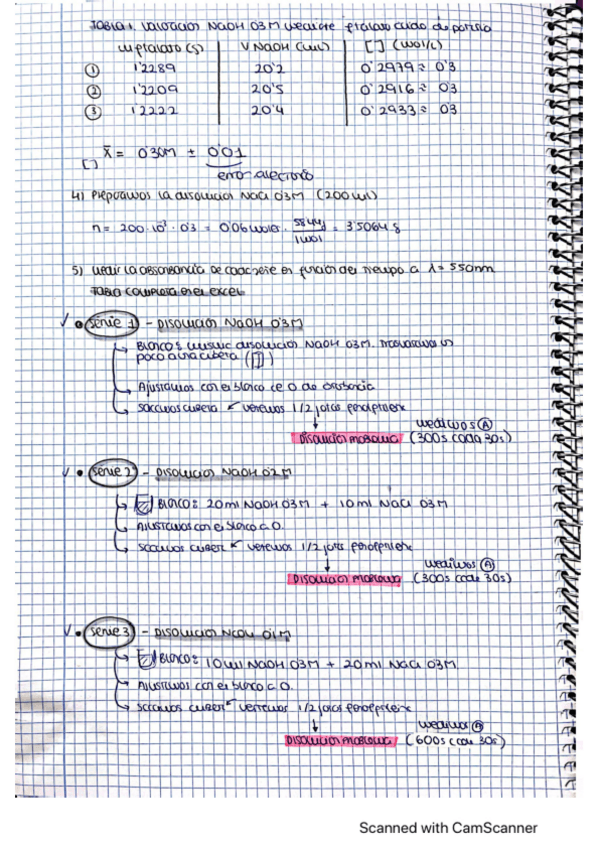 TABLA 1. Valoración NaOH 0'3M mediante ftalato ácido de potasio
m ftalato (g) V NaOH (mL) [ ] (mol/L)
① 1'2289 20'2 0'2979 ≈ 0'3
② 1'2209 20'5 0'2916 ≈ 0'3
③ 1'2222 20'4 0'2933 ≈ 0'3
x̄ [ ] = 0'30M ± 0'01
error aleatorio
4) Preparamos la disolución NaCl 0'3M (200ml)
n = 200·10⁻³ · 0'3 = 0'06 moles · 58'44g / 1mol = 3'5064 g
5) Medir la absorbancia de cada serie en función del tiempo a λ = 550nm
TABLA COMPLETA EN EL EXCEL
✓ • Serie 1 - DISOLUCIÓN NaOH 0'3M
Blanco: misma disolución NaOH 0'3M. Trasvasamos un
poco a una cubeta ( )
Ajustamos con el blanco a 0 de absorbancia
Sacamos cubeta vertemos 1/2 gotas fenolftaleína
DISOLUCIÓN MORADA (300s cada 30s)
medimos Ⓐ
✓ • Serie 2 - DISOLUCIÓN NaOH 0'2M
Blanco: 20ml NaOH 0'3M + 10ml NaCl 0'3M
Ajustamos con el blanco a 0.
Sacamos cubeta vertemos 1/2 gotas fenolftaleína
DISOLUCIÓN MORADA (300s cada 30s)
medimos Ⓐ
✓ • Serie 3 - DISOLUCIÓN NaOH 0'1M
Blanco: 10ml NaOH 0'3M + 20ml NaCl 0'3M
Ajustamos con el blanco a 0.
Sacamos cubeta vertemos 1/2 gotas fenolftaleína
DISOLUCIÓN MORADA (600s cada 30s)
medimos Ⓐ
Scanned with CamScanner